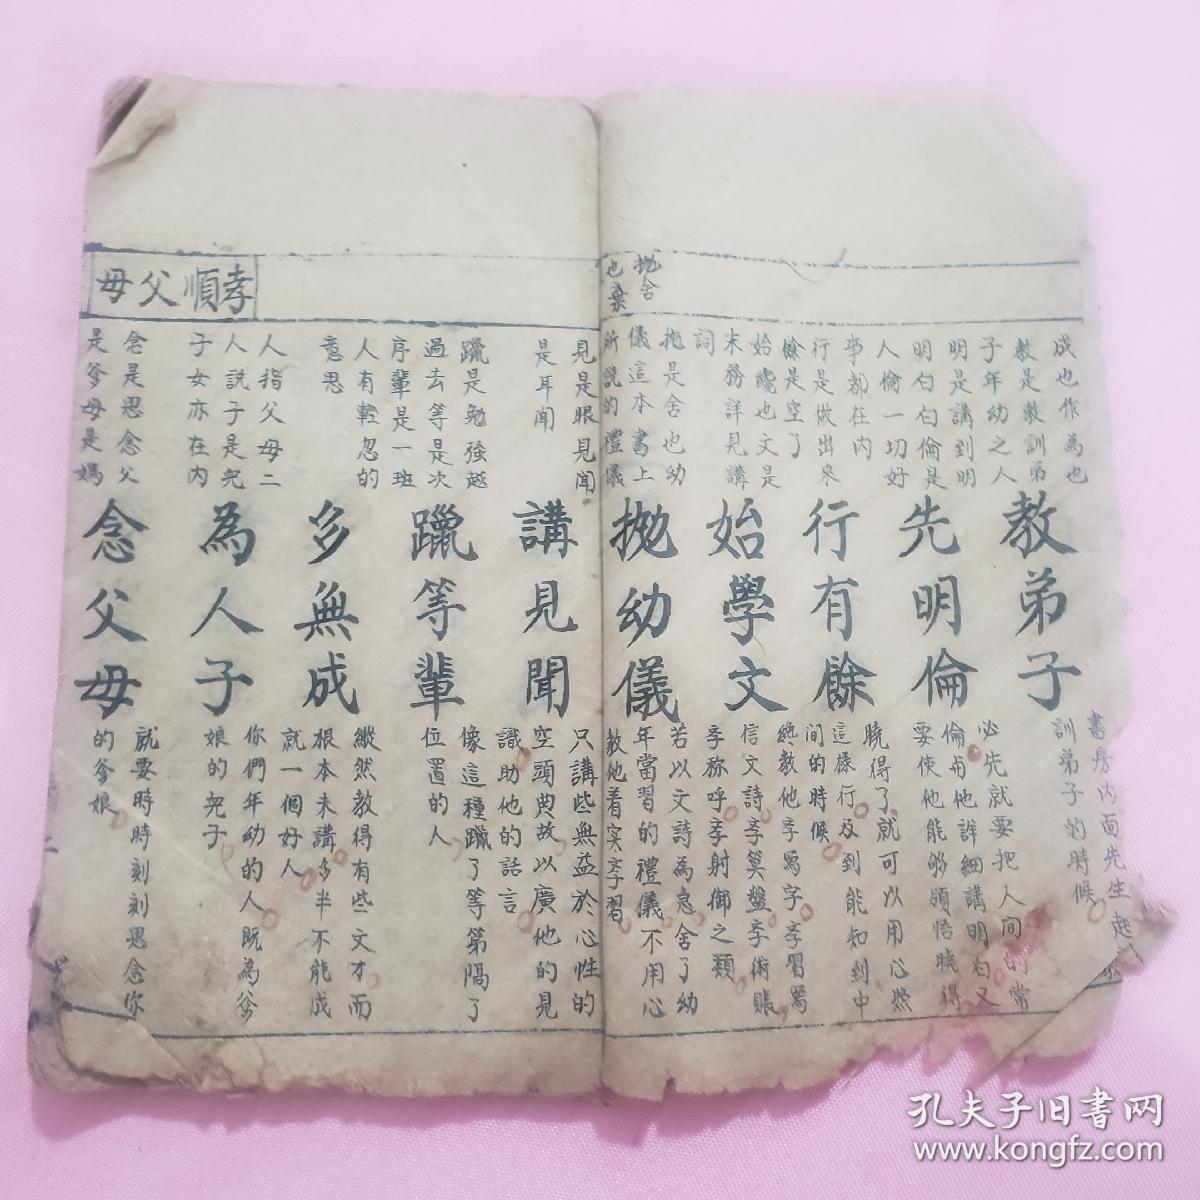 拋舍
也棄
成也作為也
教是教訓弟
子年幼之人
明是講到明
明白白倫是
人倫一切好
事都在內
行是做出來
餘是空了
始纔也文是
末務詳見講
詞
拋是舍也幼
儀這本書上
所說的禮儀
教弟子
先明倫
行有餘
始學文
拋幼儀
書房內面先生起
訓弟子的時候
必先就要把人間的常
倫與他詳細講明白又
要使他能够領悟曉得
曉得了就可以用心然
這樣行及到能知到中
間的時候
纔教他孛寫字孛習寫
信文詩孛算盤孛術賬
孛称呼孛射御之類
若以文詩為急舍了幼
年當習的禮儀不用心
教他着实孛習
孝順父母
見是眼見聞
是耳聞
躐是勉強越
過去等是次
序輩是一班
人有輕忽的
意思
人指父母二
人說子是兒
子女亦在內
念是思念父
是爹母是媽
講見聞
躐等輩
多無成
為人子
念父母
只講些無益於心性的
空頭典故以廣他的見
識助他的話言
像這種躐了等第隔了
位置的人
縱然教得有些文才而
根本未講多半不能成
就一個好人
你們年幼的人既為爹
娘的兒子
就要時時刻刻思念你
的爹娘
孔夫子旧书网
www.kongfz.com